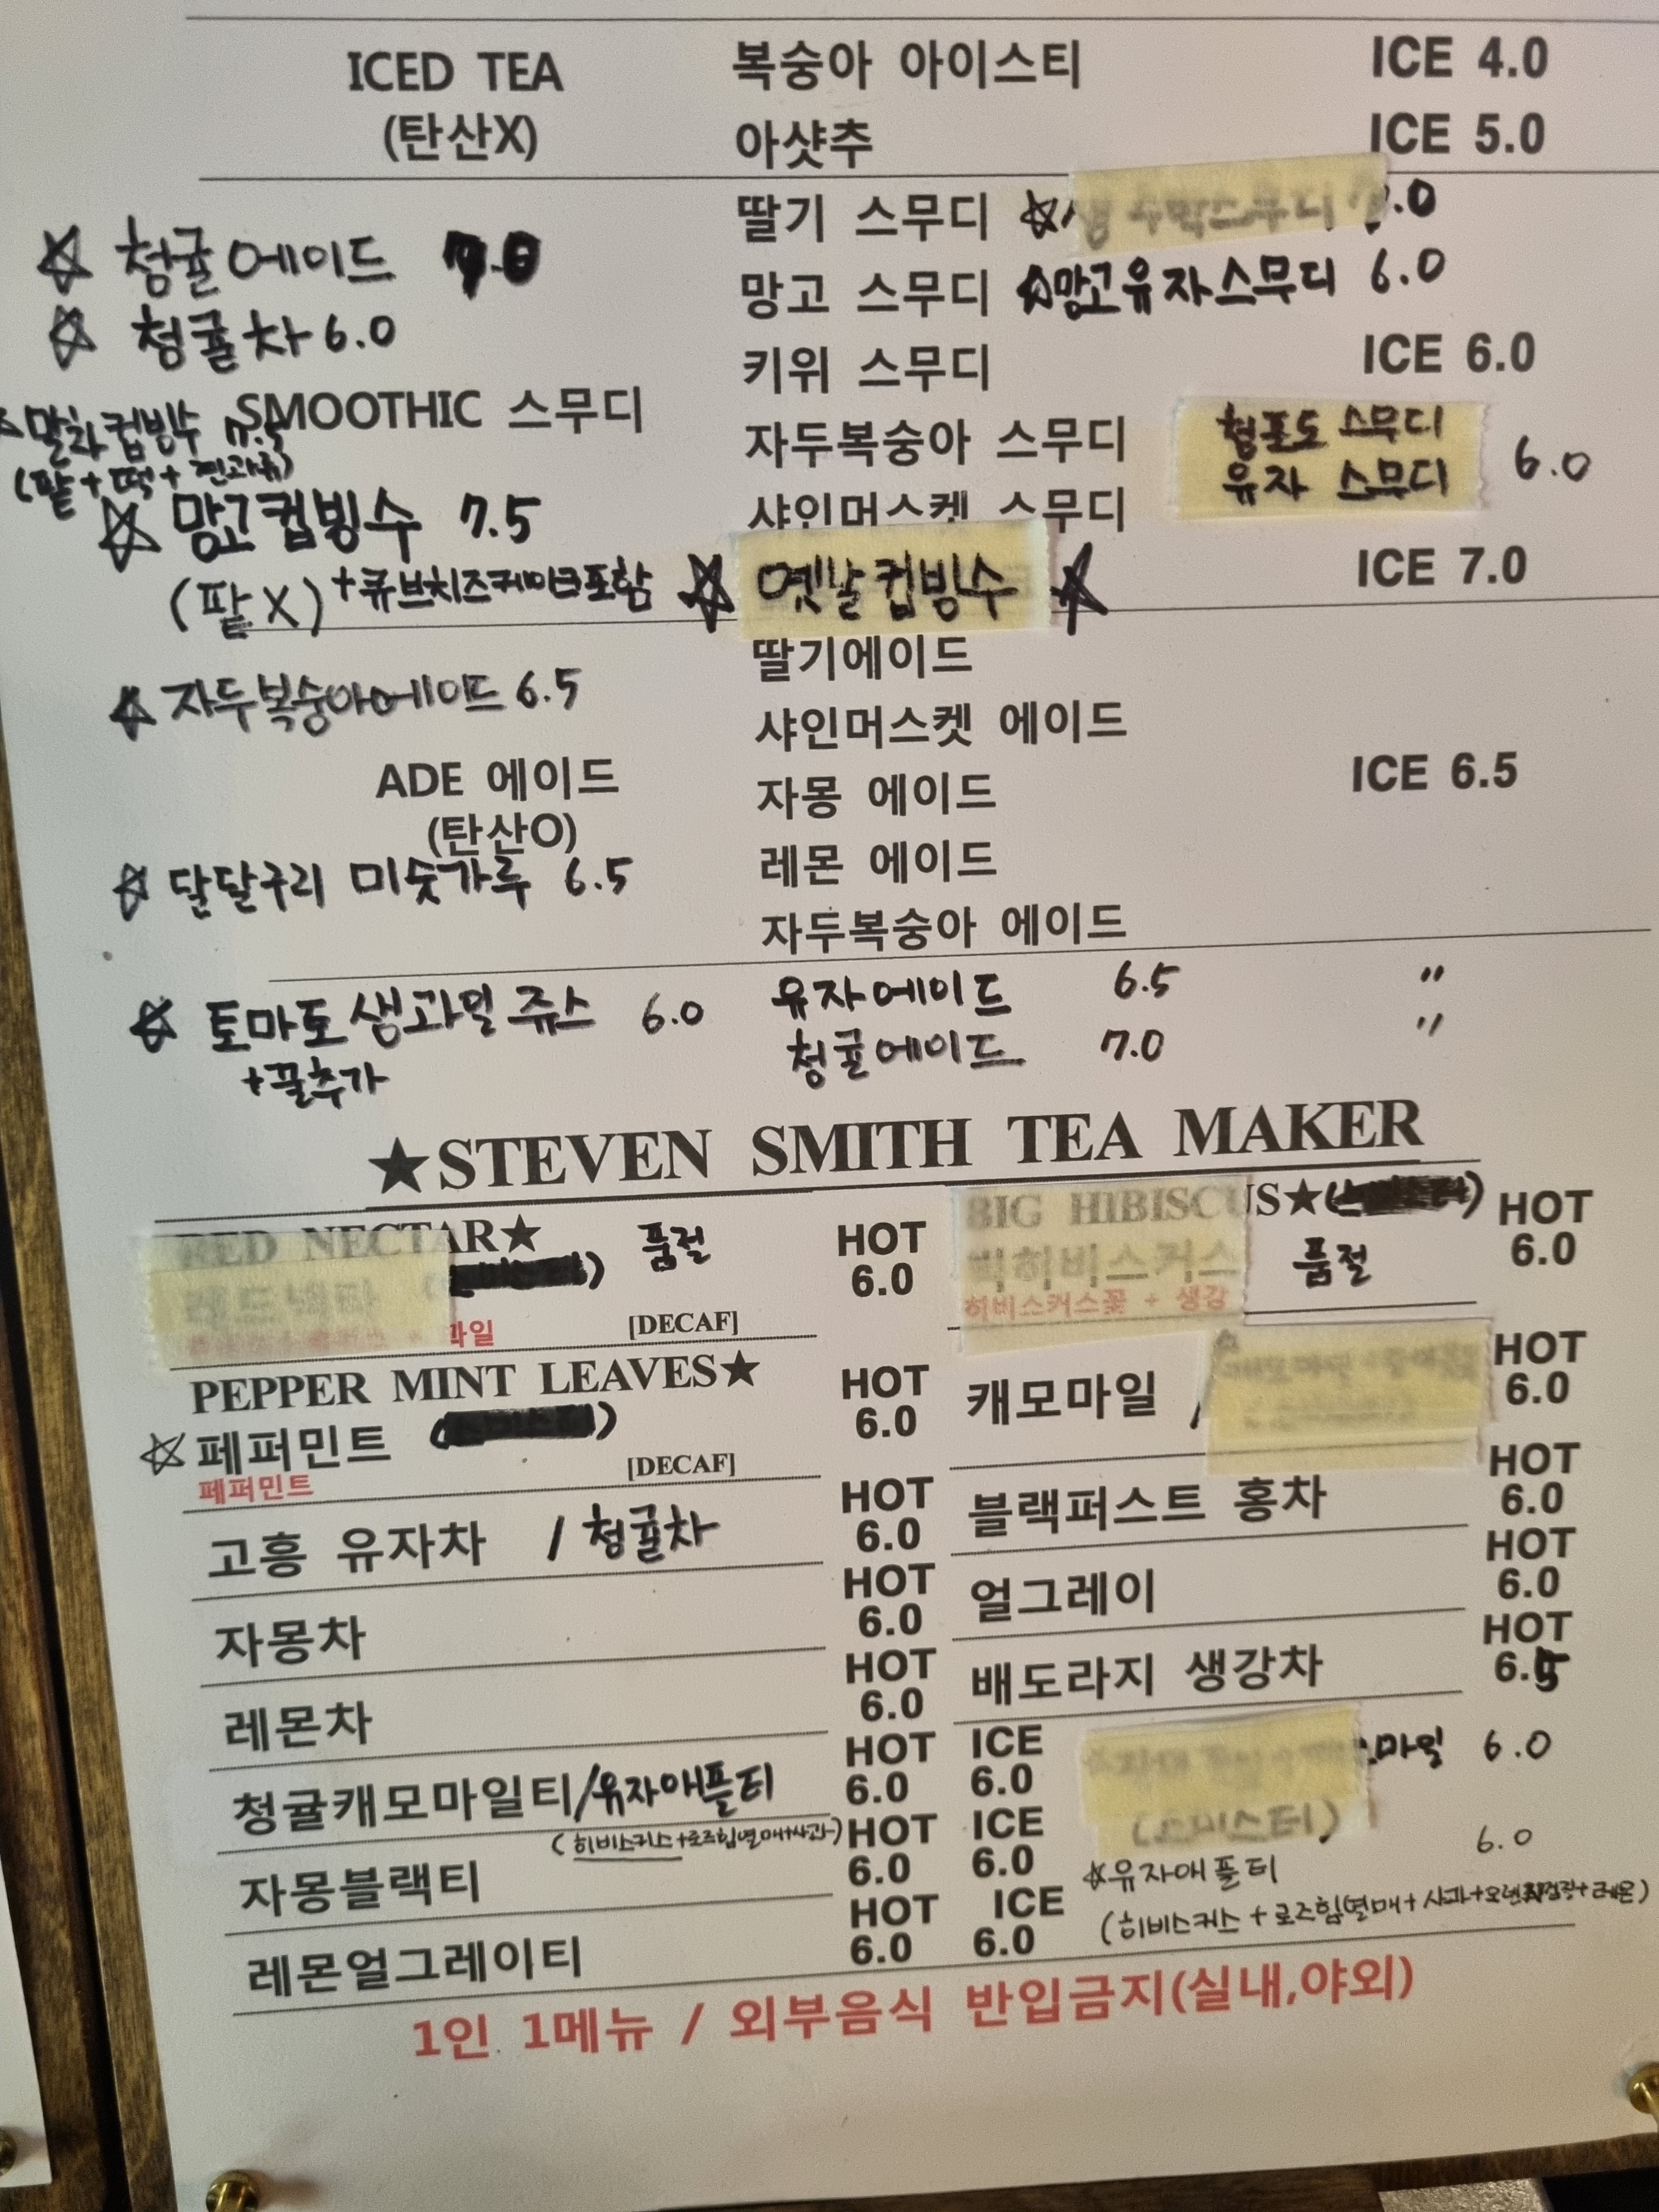 ICED TEA 복숭아 아이스티 ICE 4.0
(탄산X) 아샷추 ICE 5.0
딸기 스무디 ☆생 수박스무디 .0
☆ 청귤에이드 7.0
망고 스무디 ☆망고유자스무디 6.0
☆ 청귤차 6.0
키위 스무디 ICE 6.0
SMOOTHIC 스무디
☆말차컵빙수 7.5
(팥+떡+견과류)
자두복숭아 스무디 청포도 스무디
유자 스무디 6.0
☆ 망고컵빙수 7.5
샤인머스켓 스무디
(팥X)+큐브치즈케이크포함
☆ 옛날컵빙수 ☆ ICE 7.0
딸기에이드
☆ 자두복숭아에이드 6.5
샤인머스켓 에이드
ADE 에이드 자몽 에이드 ICE 6.5
(탄산O)
☆ 달달구리 미숫가루 6.5
레몬 에이드
자두복숭아 에이드
☆ 토마토 생과일 쥬스 6.0
+꿀추가
유자에이드 6.5 〃
청귤에이드 7.0 〃
★STEVEN SMITH TEA MAKER
RED NECTAR★ 품절 HOT
6.0
[DECAF]
BIG HIBISCUS★ HOT
빅히비스커스 품절 6.0
히비스커스꽃 + 생강
PEPPER MINT LEAVES★ HOT
☆페퍼민트 6.0
페퍼민트 [DECAF]
캐모마일 / HOT
6.0
고흥 유자차 / 청귤차 HOT
6.0
블랙퍼스트 홍차 HOT
6.0
자몽차 HOT
6.0
얼그레이 HOT
6.0
레몬차 HOT
6.0
배도라지 생강차 HOT
6.5
청귤캐모마일티/유자애플티 HOT ICE
6.0 6.0
(히비스커스+로즈힙열매+사과)
마일 6.0
자몽블랙티 HOT ICE
6.0 6.0
☆유자애플티 6.0
레몬얼그레이티 HOT ICE
6.0 6.0
(히비스커스 + 로즈힙열매+사과+오렌지+레몬)
1인 1메뉴 / 외부음식 반입금지(실내,야외)